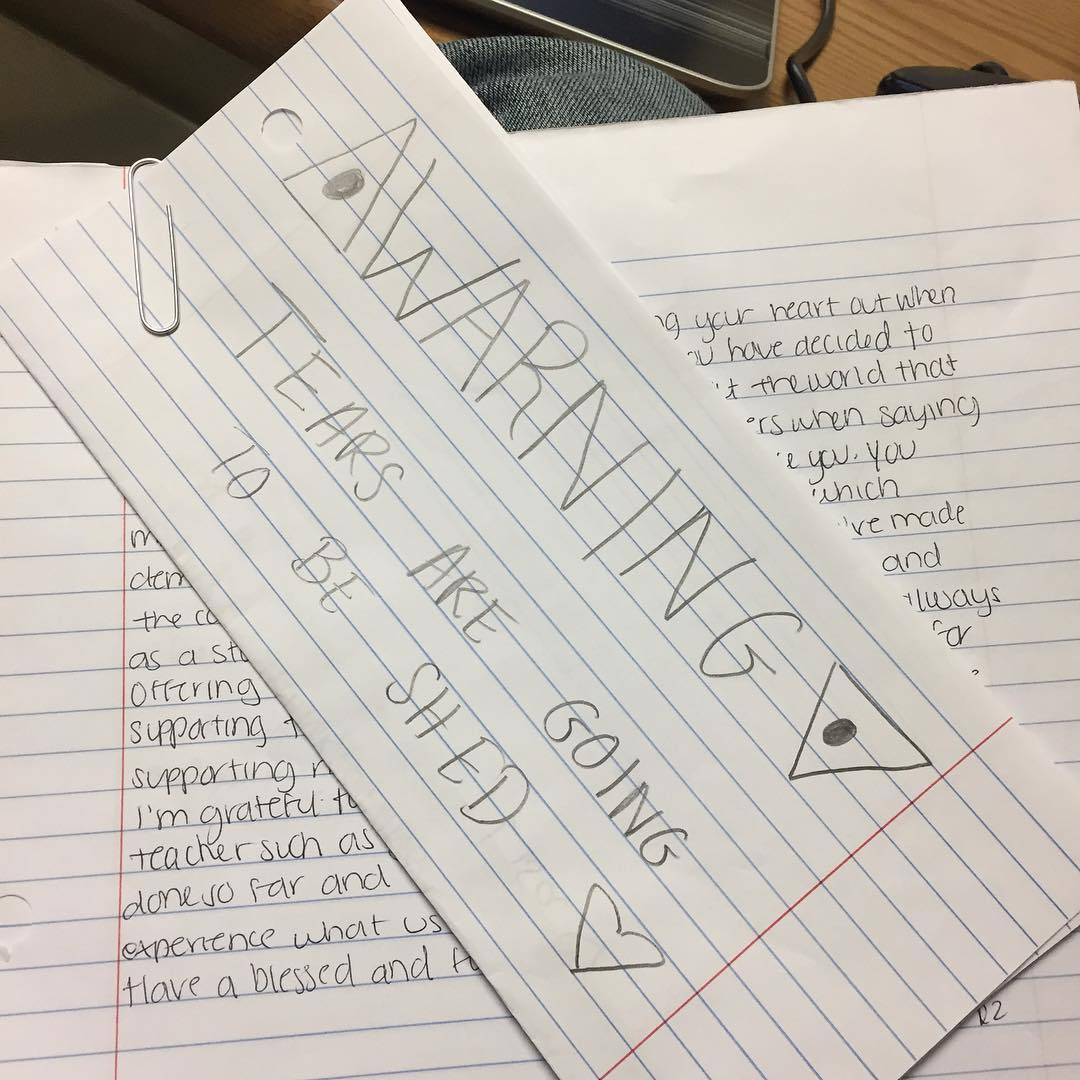 WARNING
TEARS ARE GOING
TO BE SHED
your heart out when
have decided to
the world that
when saying
you. You
which
made
and
always
for
the
as a
offering
supporting
supporting
I'm grateful
teacher such as
done so far and
experience what us
Have a blessed and